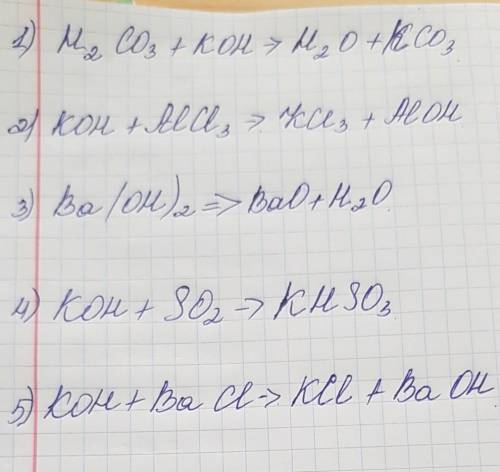 1) H₂CO₃ + KOH → H₂O + KCO₃
2) KOH + AlCl₃ → KCl₃ + AlOH
3) Ba(OH)₂ => BaO + H₂O
4) KOH + SO₂ → KHSO₃
5) KOH + BaCl → KCl + BaOH